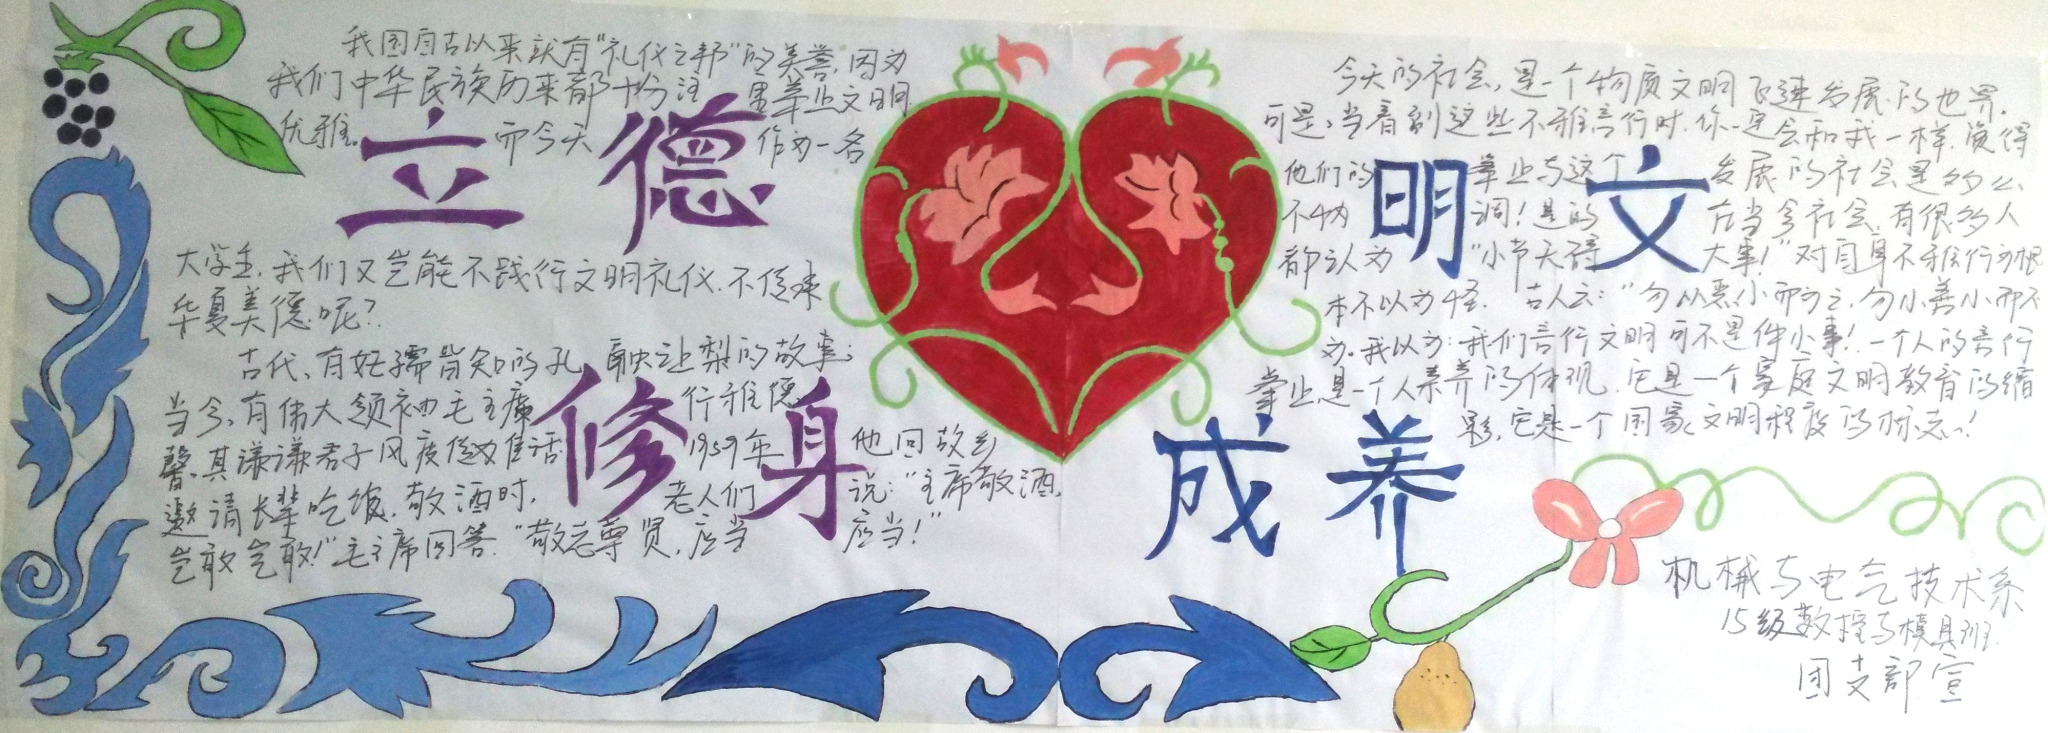 我国自古以来就有“礼仪之邦”的美誉，因为
我们中华民族历来都十分注重举止文明
优雅。而今天作为一名
立德
大学生，我们又岂能不践行文明礼仪，不传承
华夏美德呢？
古代，有妇孺皆知的孔融让梨的故事；
当今，有伟大领袖毛主席行雅德
馨，其谦谦君子风度传为佳话 1959年他回故乡
邀请长辈吃饭，敬酒时，老人们说：“主席敬酒，
岂敢岂敢！”毛主席回答：“敬老尊贤，应当应当！”
修身
今天的社会，是一个物质文明飞速发展的世界。
可是，当看到这些不雅言行时，你一定会和我一样，觉得
他们的举止与这个发展的社会是多么
不协调！是的在当今社会，有很多人
都认为“小节无碍大事！”对自身不雅行为根
明文
本不以为怪。古人云：“勿以恶小而为之，勿小善小而不
为。我以为：我们言行文明可不是件小事！一个人的言行
举止，是一个人素养的体现，它是一个家庭文明教育的缩
影，它是一个国家文明程度的标志！
成养
机械与电气技术系
15级数控与模具班
团支部宣